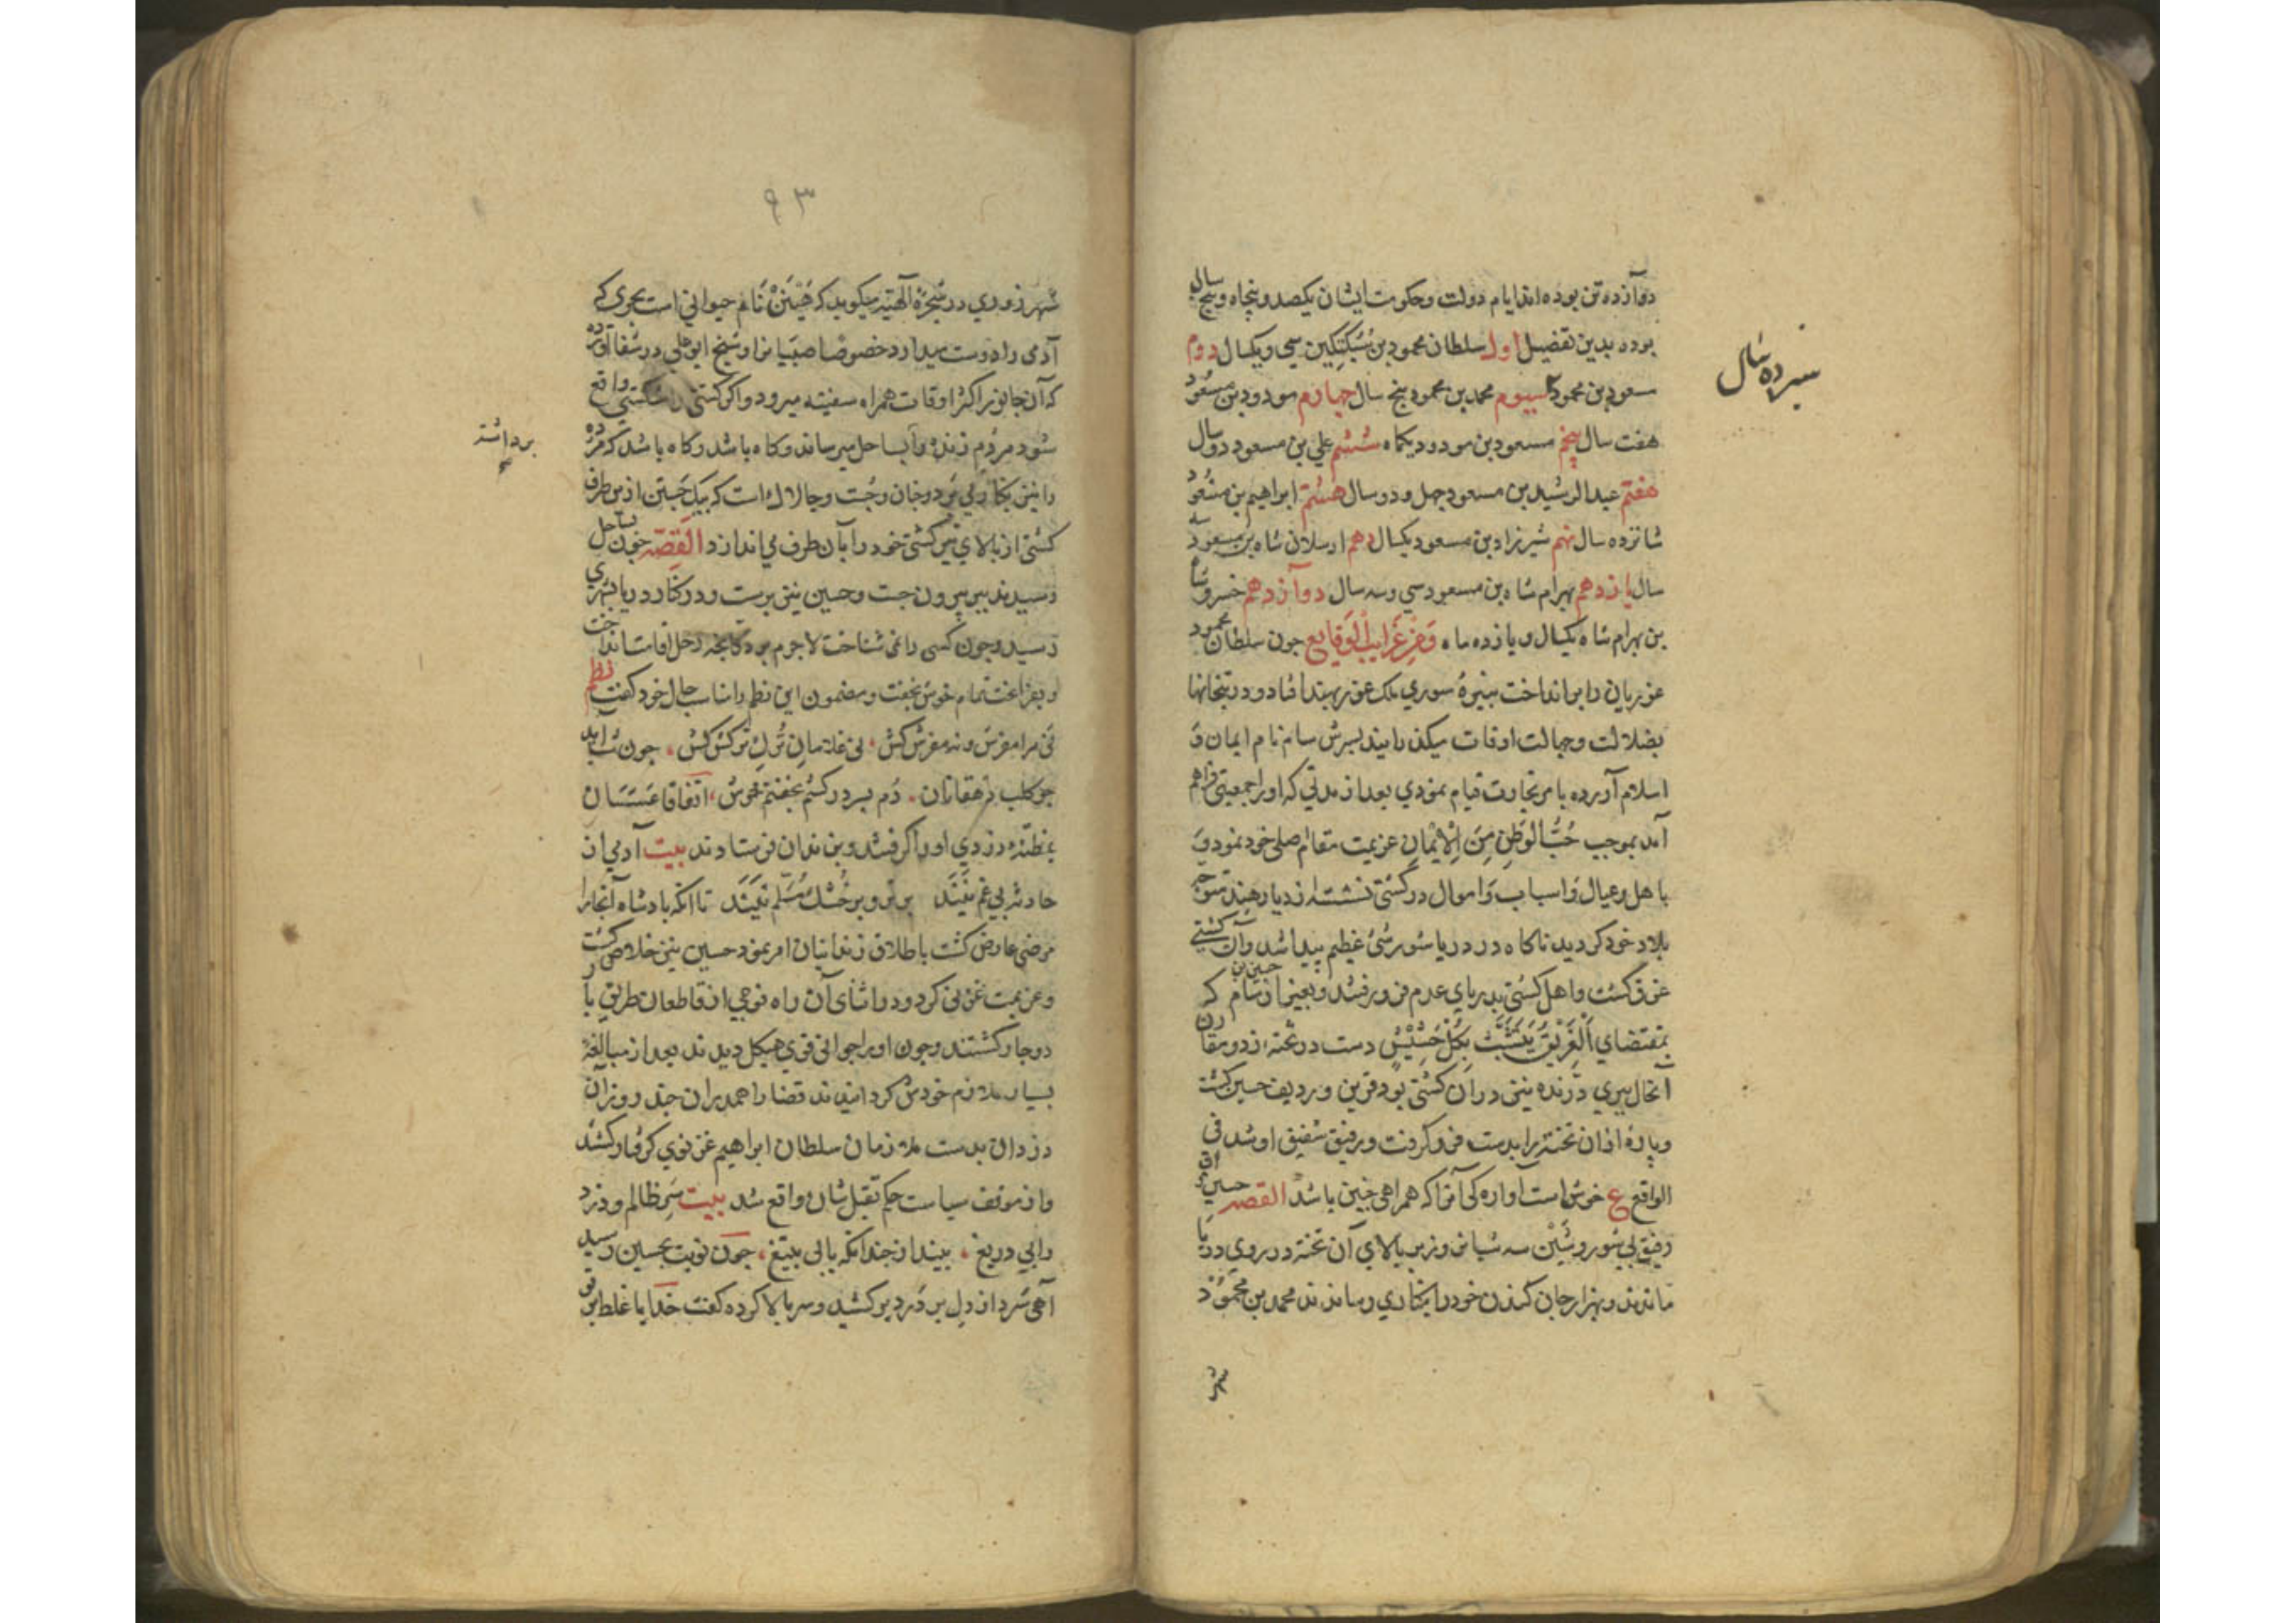 دوازده تن بوده اند ایام دولت وحکومت ایشان یکصد وپنجاه وپنج سال
بوده بدین تفضیل اول سلطان محمود بن سبکتکین سی ویکسال دوم
مسعود بن محمود سیوم محمد بن محمود پنج سال چهارم مودود بن مسعود
سیزده سال
هفت سال پنجم مسعود بن مودود یکماه ششم علی بن مسعود دو سال
هفتم عبد الرشید بن مسعود چهل ودو سال هشتم ابراهیم بن مسعود
شانزده سال نهم شیرزاد بن مسعود یکسال دهم ارسلان شاه بن مسعود سه
سال یازدهم بهرام شاه بن مسعود سی وسه سال دوآزدهم خسرو شاه
بن بهرام شاه یکسال و یازده ماه ومن غرایب الوقایع چون سلطان محمود
غوریان را برانداخت نبیرهٔ سوری ملک غور بهند افتاد و در بتخانها
بضلالت وجهالت اوقات میکذرانید پسرش سام نام ایمان و
اسلام آورده بامر تجارت قیام نمودی بعد از مدتی که اورا جمعیتی فراهم
آمد بموجب حُبُّ الوَطَنِ مِنَ الْاِیْمَانِ عزیمت مقام اصلی خود نمود و
با اهل وعیال و اسباب و اموال در کشتی نشسته از دیار هند متوجه
بلاد خود کردید ناکاه در دریا شورشی عظیم پیدا شد وآن کشتی
غرق کشت واهل کشتی بدریای عدم فرو رفتند وبغیر از حسین بن سام که
بمقتضای اَلْغَرِیْقُ یَتَشَبَّثُ بِکُلِّ حَشِیْشٍ دست در تخته زد ومقارن
آنحال ببری درنده نیز در آن کشتی بود قرین و ردیف حسین کشت
وپارهٔ ازان تخته را بدست فرو کرفت ورفیق شفیق او شد فی
الواقع ع خوش است آواره کی آنرا که همراهی چنین باشد القصه حسین وآن
رفیق بی شور وشین سه شبانروز بر بالای آن تخته در روی دریا
ماندند وبهزار جان کندن خودرا بکناری رساندند محمد بن محمود
شهر
۹۳
شهرزوری در شجرهٔ الهیه میکوید که ببر نام حیوانی است بحری که
آدمی را دوست میدارد خصوصا صبیانرا وشیخ ابو علی در شفا آورده
که آن جانور اکثر اوقات همراه سفینه میرود واکر کشتی را شکستی واقع
شود مردم زنده را بساحل میرساند وکاه باشد وکاه باشد که مرده
برداشته
را نیز بکنار می برد وچنان چست وچالاک است که بیک جستن ازین طرف
کشتی از بالای تیر کشتی خود را بآن طرف می اندازد القصه چون بساحل
رسیدند ببر بیرون جست وحسین نیز برست ودر کنار دریا بشهری
رسید وچون کسی را نمی شناخت لاجرم بر دکانچه رحل اقامت انداخت
وبفراغت تمام خوش بخفت ومضمون این نظم را مناسب حال خود کفت نظم
نی مرا مفرش ونه مفرش کش نی غلامان ترک ترکش کش چون شب آید
چو کلب دهقانان دم بسر درکشم بخفتم خوش اتفاقا عسسان
بمظنهٔ دزدی اورا کرفتند وبزندان فرستادند بیت آدمی از
حادثه بی غم نیند بر تر و بر خشک مسلم نیند تا آنکه پادشاه آنجارا
مرضی عارض کشت باطلاق زندانیان امر نمود حسین نیز خلاص کشت
وعزیمت غزنی کرد ودر اثنای آن راه فوجی از قاطعان طریق با
دوچار کشتند وچون اورا جوانی قوی هیکل دیدند بعد از مبالغهٔ
بسیار ملازم خودش کردانیدند قضارا همدران چند روز آن
دزدان بدست ملازمان سلطان ابراهیم غزنوی کرفتار کشتند
واز موقف سیاست حکم بقتل شان واقع شد بیت سر ظالم ودزد
را بی دریغ بینداز چندانکه یابی بتیغ چون نوبت بحسین رسید
آهی سرد از دل پر درد برکشید وسر بالا کرده کفت خدایا غلط بر تو